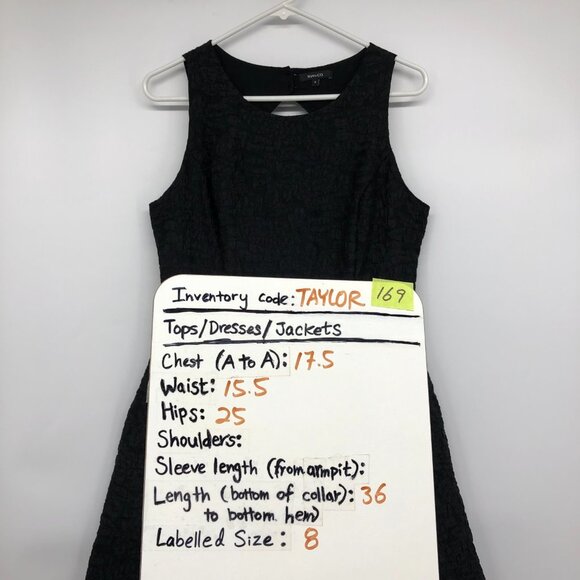 Inventory code: TAYLOR 169
Tops/Dresses/Jackets
Chest (A to A): 17.5
Waist: 15.5
Hips: 25
Shoulders:
Sleeve length (from armpit):
Length (bottom of collar): 36
to bottom hem)
Labelled Size: 8